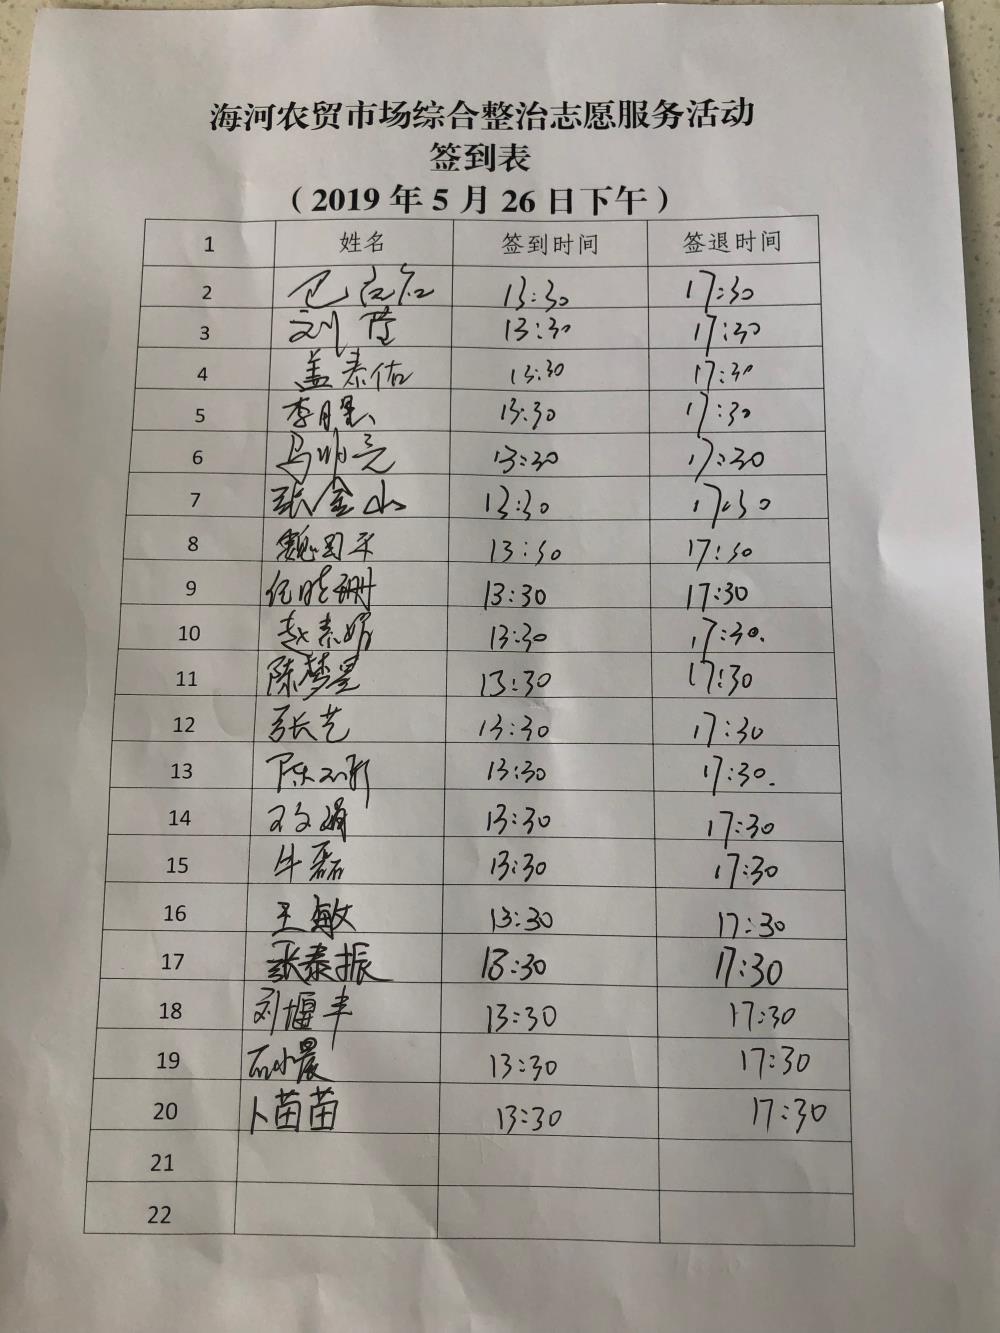 海河农贸市场综合整治志愿服务活动
签到表
（2019年5月26日下午）
1 姓名 签到时间 签退时间
2 13:30 17:30
3 刘 13:30 17:30
4 盖泰佑 13:30 17:30
5 李 13:30 17:30
6 马帅亮 13:30 17:30
7 张金山 13:30 17:30
8 魏国平 13:30 17:30
9 倪晓珊 13:30 17:30
10 赵素娟 13:30 17:30.
11 陈梦星 13:30 17:30
12 张艺 13:30 17:30
13 陈 13:30 17:30.
14 王文娟 13:30 17:30
15 牛磊 13:30 17:30
16 王敏 13:30 17:30
17 张泰振 13:30 17:30
18 刘堰丰 13:30 17:30
19 石小晨 13:30 17:30
20 卜苗苗 13:30 17:30
21
22